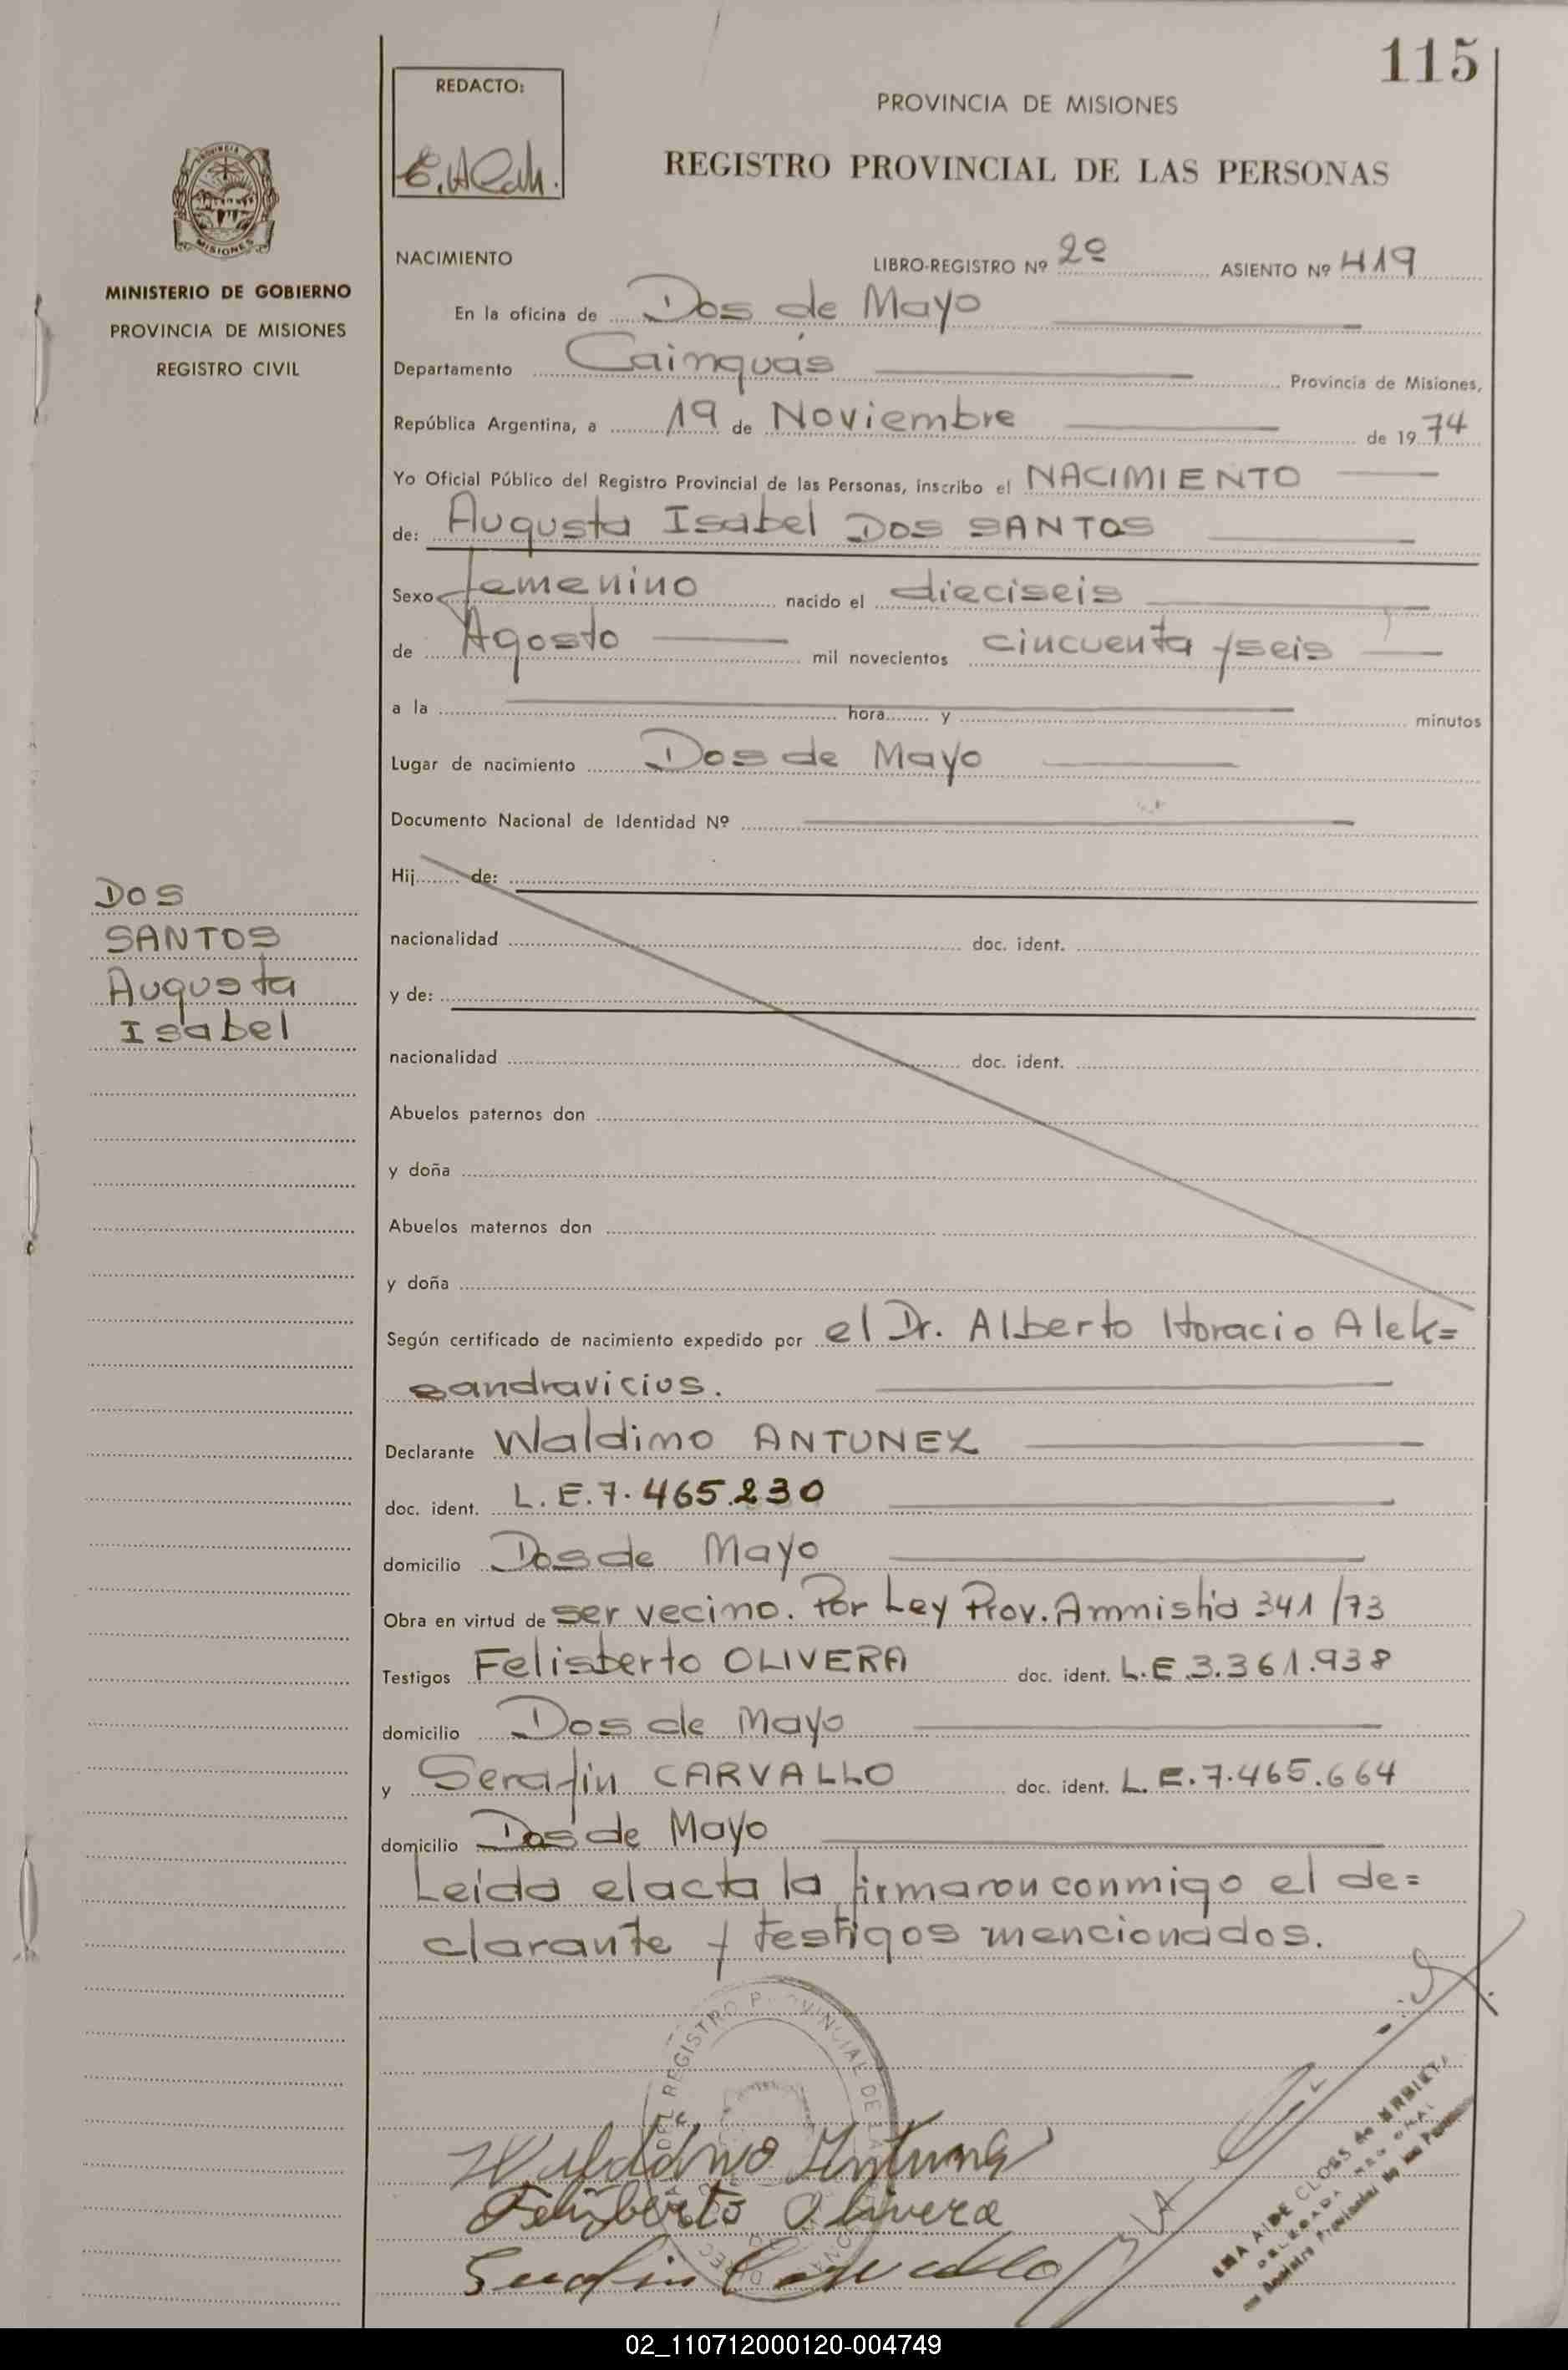 115
REDACTO:
PROVINCIA DE MISIONES
REGISTRO PROVINCIAL DE LAS PERSONAS
MISIONES
MINISTERIO DE GOBIERNO
PROVINCIA DE MISIONES
REGISTRO CIVIL
NACIMIENTO LIBRO-REGISTRO Nº 2º ASIENTO Nº 419
En la oficina de Dos de Mayo
Departamento Cainguás Provincia de Misiones,
República Argentina, a 19 de Noviembre de 1974
Yo Oficial Público del Registro Provincial de las Personas, inscribo el NACIMIENTO
de: Augusta Isabel DOS SANTOS
Sexo femenino nacido el dieciseis
de Agosto mil novecientos cincuenta y seis
a la hora y minutos
Lugar de nacimiento Dos de Mayo
Documento Nacional de Identidad Nº
Hij de:
DOS
SANTOS
Augusta
Isabel
nacionalidad doc. ident.
y de:
nacionalidad doc. ident.
Abuelos paternos don
y doña
Abuelos maternos don
y doña
Según certificado de nacimiento expedido por el Dr. Alberto Horacio Alek=
sandravicius.
Declarante Waldimo ANTUNEZ
doc. ident. L.E.7.465.230
domicilio Dos de Mayo
Obra en virtud de ser vecino. Por Ley Prov. Amnistia 341/73
Testigos Felisberto OLIVERA doc. ident. L.E.3.361.938
domicilio Dos de Mayo
y Serafin CARVALLO doc. ident. L.E.7.465.664
domicilio Dos de Mayo
Leida el acta la firmaron conmigo el de=
clarante y testigos mencionados.
REGISTRO PROVINCIAL DE
Felisberto Olivera
Serafin Carvallo
AIDE CLOSS de
DELEGADA
02_110712000120-004749